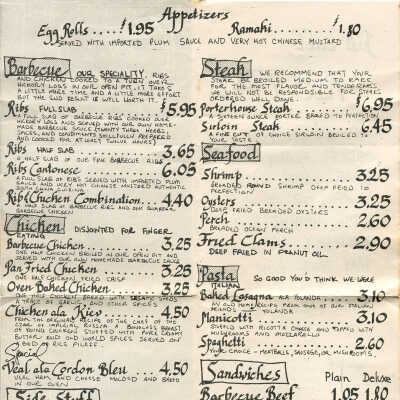 Appetizers
Egg Rolls .... $1.95
Rumaki ..... $1.80
SERVED WITH IMPORTED PLUM SAUCE AND VERY HOT CHINESE MUSTARD
Barbecue OUR SPECIALITY. RIBS
AND CHICKEN COOKED TO A TURN OVER
HICKORY LOGS IN OUR OPEN PIT. IT TAKES
A LITTLE MORE TIME AND A LITTLE MORE EFFORT
BUT THE END RESULT IS WELL WORTH IT.
Ribs FULL SLAB $5.95
A FULL SLAB OF BARBECUE RIBS COOKED OVER
HICKORY LOGS AND SERVED WITH OUR OWN HOME-
MADE BARBECUE SAUCE
Ribs HALF SLAB ..... 3.65
A HALF SLAB OF OUR FINE BARBECUE RIBS
Ribs Cantonese ..... 6.05
A FULL SLAB OF RIBS SERVED WITH IMPORTED PLUM
SAUCE AND VERY HOT CHINESE MUSTARD
Rib Chicken Combination .... 4.40
A HALF SLAB OF BARBECUE RIBS AND OUR SUPERB
BARBECUE CHICKEN
Chicken DISJOINTED FOR FINGER
EATING
Barbecue Chicken ..... 3.25
ONE CHICKEN BROILED IN OUR OPEN PIT AND
SERVED WITH OUR HOMEMADE BARBECUE SAUCE
Pan Fried Chicken ..... 3.25
ONE HALF CHICKEN FRIED CRISP
Oven Baked Chicken ..... 3.25
ONE HALF CHICKEN BAKED WITH SESAME SEEDS
A TRACE OF GARLIC AND OTHER SPICES
Chicken ala Kiev ..... 4.50
FROM THE ORIGINAL RECIPE OF THE CHEF OF THE
CZAR OF IMPERIAL RUSSIA A BONELESS BREAST
OF YOUNG CHICKEN STUFFED WITH PURE CREAMY
BUTTER AND OLD WORLD SPICES SERVED ON
BED OF RICE PILAFF.
Special
Veal ala Cordon Bleu ... 4.50
VEAL HAM, AND CHEESE ROLLED AND BAKED
IN OUR OVEN
Side Stuff
Steak WE RECOMMEND THAT YOUR
STEAK BE BROILED MEDIUM TO RARE
FOR THE MOST FLAVOR AND TENDERNESS
WE WILL NOT BE RESPONSIBLE FOR STEAKS
ORDERED WELL DONE.
Porterhouse Steak ... $6.95
A SIXTEEN OUNCE PORTER BROILED TO PERFECTION
Sirloin Steak ..... 6.45
A FINE CUT OF CHOICE SIRLOIN BROILED TO
YOUR TASTE.
Seafood
Shrimp ..... 3.25
BREADED ROUND SHRIMP DEEP FRIED TO
PERFECTION
Oysters ..... 3.25
DEEP FRIED BREADED OYSTERS
Perch ..... 2.60
BREADED OCEAN PERCH
Fried Clams ..... 2.90
DEEP FRIED IN PEANUT OIL
Pasta SO GOOD YOU'D THINK WE WERE
ITALIAN
Baked Lasagna ALA YOLANDA ... 3.10
Manicotti ..... 3.10
STUFFED WITH RICOTTA CHEESE AND TOPPED WITH
MUSHROOMS AND MOZZARELLA
Spaghetti ..... 2.60
YOUR CHOICE - MEATBALLS, SAUSAGE, OR MUSHROOMS.
Sandwiches Plain Deluxe
Barbecue Beef 1.05 1.80